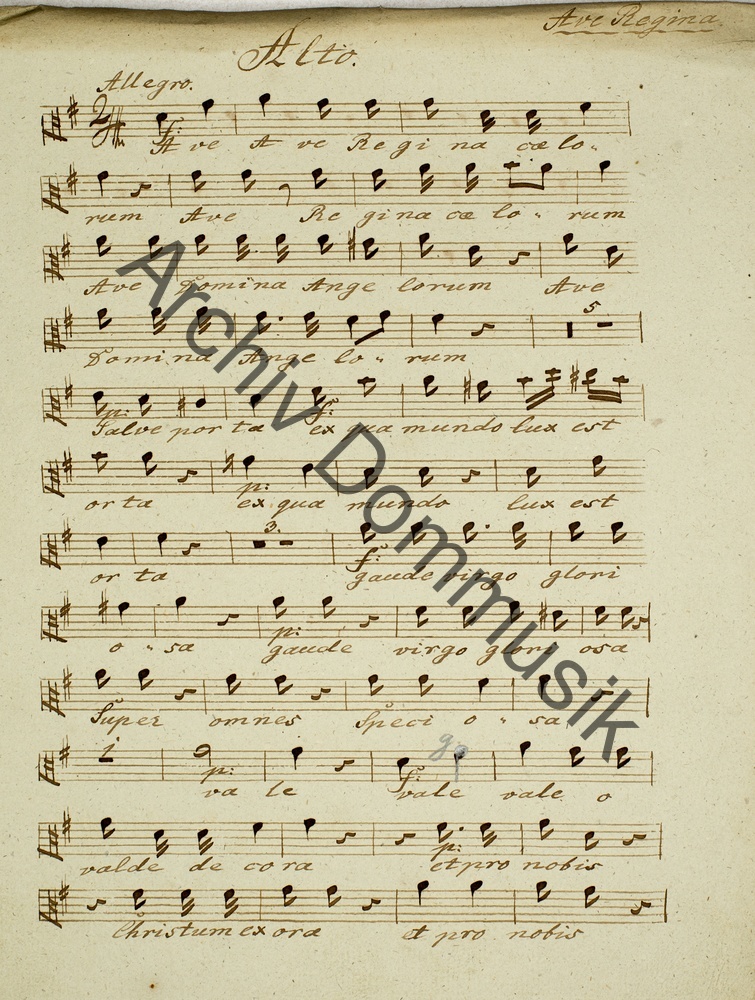 Ave Regina
Alto.
Allegro.
2
f:
A ve A ve Re gi na cæ lo„
rum Ave Re gina cæ lo „ rum
Ave Domina Ange lorum Ave
5
Domi na Ange lo „ rum
p: f:
Salve por ta ex qua mundo lux est
p:
or ta ex qua mundo lux est
3.
f:
or ta gaude virgo glori
p:
o „ sa gaude virgo glori osa
Super omnes Speci o „ sa
1 p: f: ge
va le vale vale o
p:
valde de co ra et pro nobis
Christum ex ora et pro nobis
Archiv Dommusik